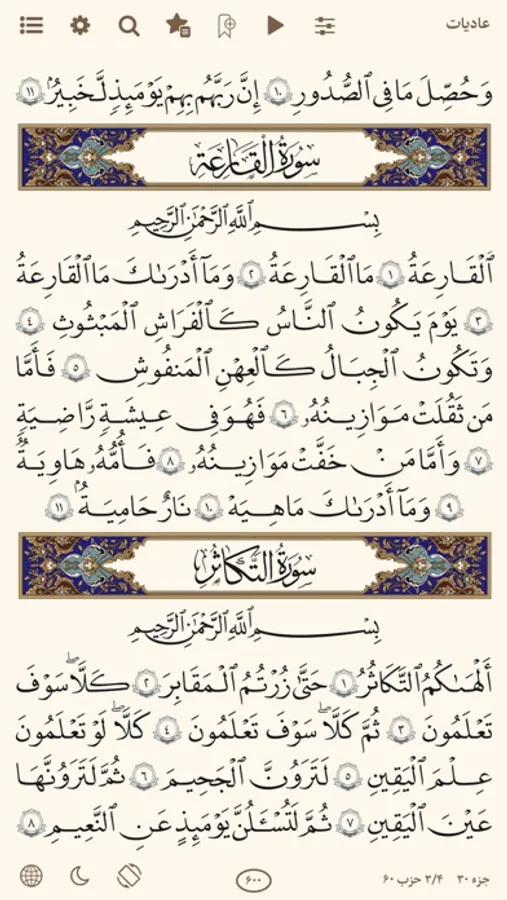 عادیات
وَحُصِّلَ مَا فِى ٱلصُّدُورِ ۝١٠ إِنَّ رَبَّهُم بِهِمْ يَوْمَئِذٍ لَّخَبِيرٌۢ ۝١١
سُورَةُ الْقَارِعَةِ
بِسْمِ ٱللَّهِ ٱلرَّحْمَٰنِ ٱلرَّحِيمِ
ٱلْقَارِعَةُ ۝١ مَا ٱلْقَارِعَةُ ۝٢ وَمَآ أَدْرَىٰكَ مَا ٱلْقَارِعَةُ
۝٣ يَوْمَ يَكُونُ ٱلنَّاسُ كَٱلْفَرَاشِ ٱلْمَبْثُوثِ ۝٤
وَتَكُونُ ٱلْجِبَالُ كَٱلْعِهْنِ ٱلْمَنفُوشِ ۝٥ فَأَمَّا
مَن ثَقُلَتْ مَوَازِينُهُۥ ۝٦ فَهُوَ فِى عِيشَةٍ رَّاضِيَةٍ
۝٧ وَأَمَّا مَنْ خَفَّتْ مَوَازِينُهُۥ ۝٨ فَأُمُّهُۥ هَاوِيَةٌ
۝٩ وَمَآ أَدْرَىٰكَ مَا هِيَهْ ۝١٠ نَارٌ حَامِيَةٌۢ ۝١١
سُورَةُ التَّكَاثُرِ
بِسْمِ ٱللَّهِ ٱلرَّحْمَٰنِ ٱلرَّحِيمِ
أَلْهَىٰكُمُ ٱلتَّكَاثُرُ ۝١ حَتَّىٰ زُرْتُمُ ٱلْمَقَابِرَ ۝٢ كَلَّا سَوْفَ
تَعْلَمُونَ ۝٣ ثُمَّ كَلَّا سَوْفَ تَعْلَمُونَ ۝٤ كَلَّا لَوْ تَعْلَمُونَ
عِلْمَ ٱلْيَقِينِ ۝٥ لَتَرَوُنَّ ٱلْجَحِيمَ ۝٦ ثُمَّ لَتَرَوُنَّهَا
عَيْنَ ٱلْيَقِينِ ۝٧ ثُمَّ لَتُسْـَٔلُنَّ يَوْمَئِذٍ عَنِ ٱلنَّعِيمِ ۝٨
جزء ۳۰ ۳/۴ حزب ۶۰
۶۰۰